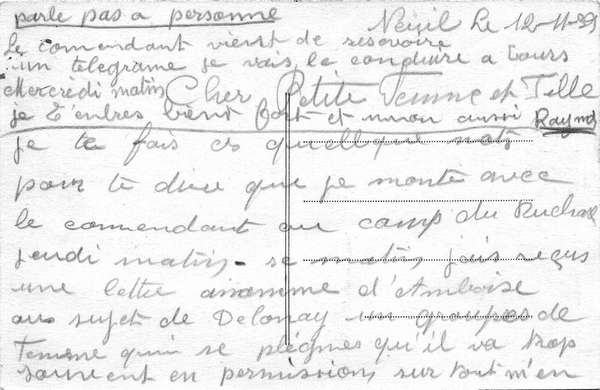 parle pas a personne
Neuil Le 12-11-39
Le comendant vient de resevoire
un telegrame je vais le conduire a Tours
Mercredi matin Cher Petite Femme et Fille
je t'enbres bient fort et mon aussi Raymond
je te fais ces quellque mots
pour te dire que je monte avec
le comendant au camp du Ruchard
jeudi matin - se matin jais reçus
une lettre anonime d'Amboise
au sujet de Delonay un groupes de
Femme qui se plégnes qu'il va trop
souvent en permissions, sur tout m'en